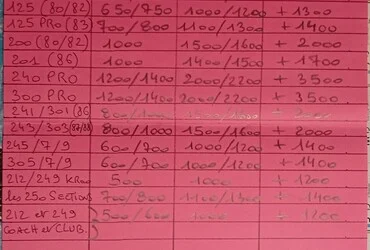 125 (80/82) 650/750 1000/1200 + 1300
125 PRO (83) 700/800 1100/1300 + 1400
200 (80/82) 1000 1500/1600 + 2000
201 (86) 1000 1400/1500 + 1700
240 PRO 1200/1400 2000/2200 + 3500
300 PRO 1200/1400 2000/2200 + 3500
241/301 (86)
243/303 (87/88) 800/1000 1500/1600 + 2000
245/7/9 600/700 1000/1200 + 1400
305/7/9 600/700 1000/1200 + 1400
212/249 500 1000 + 1200
les 250 Sections 700/800 1100/1300 + 1400
212 et 249 ) 500/600 1000 + 1200
COACH et CLUB. )